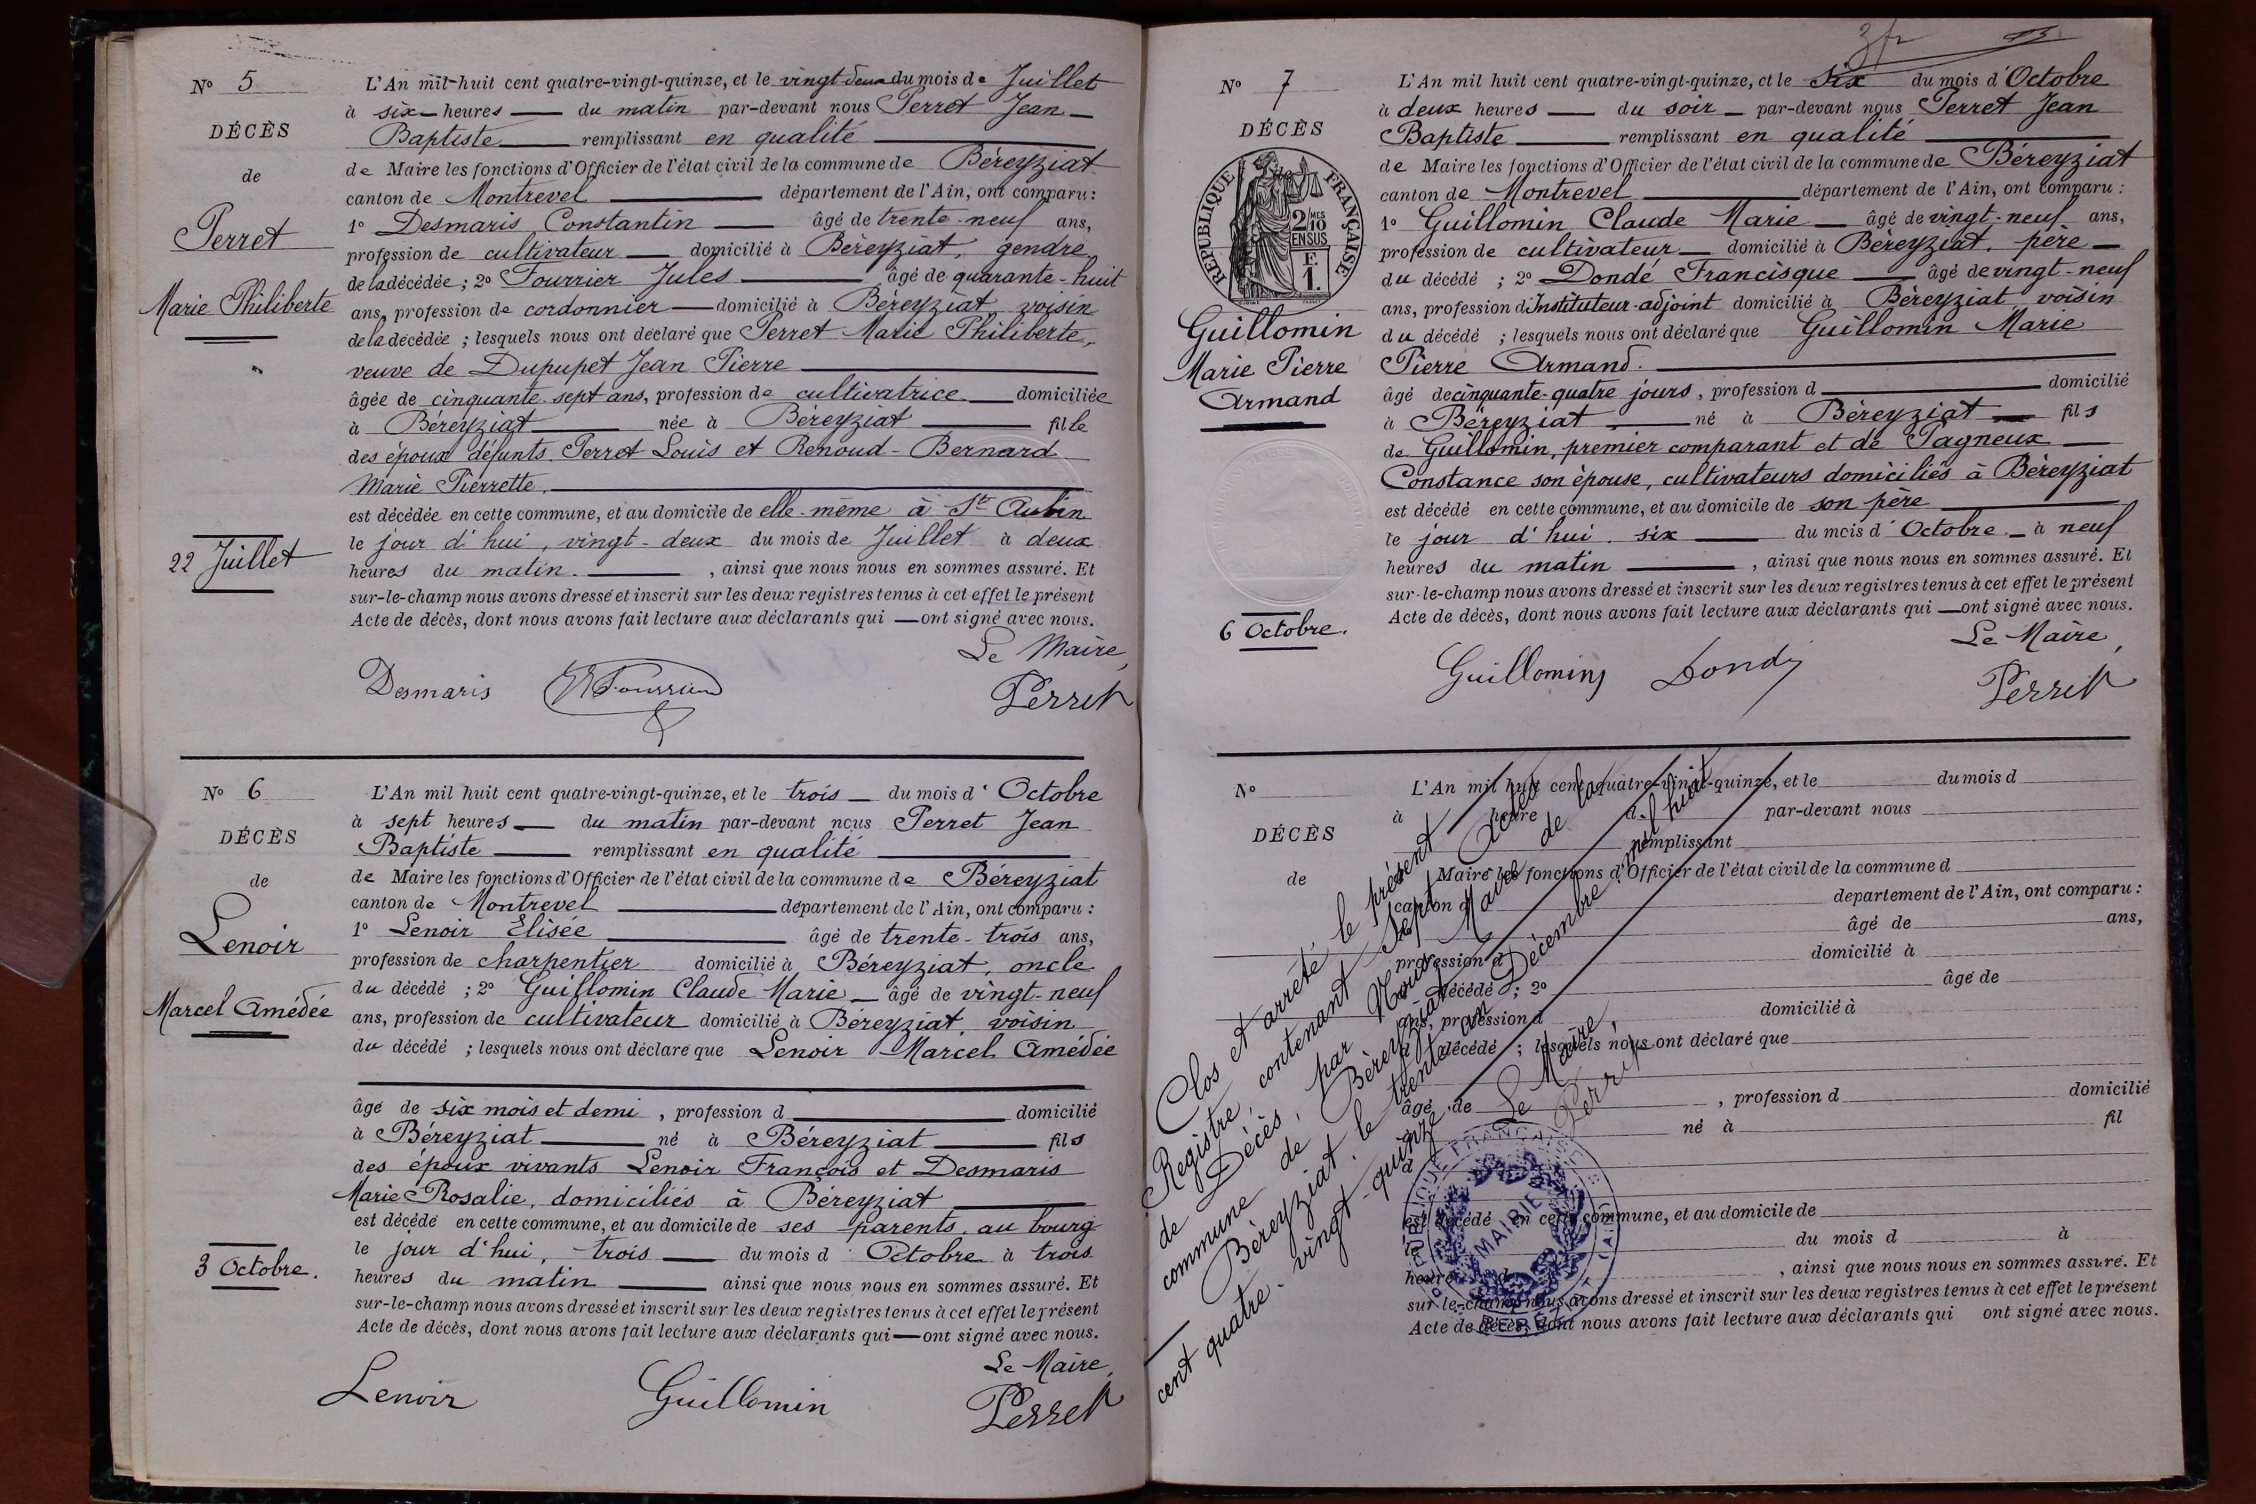 N° 5
DÉCÈS
de
Perret
Marie Philiberte
22 Juillet
L'An mil-huit cent quatre-vingt-quinze, et le vingt deux du mois de Juillet
à six heures du matin par-devant nous Perret Jean
Baptiste remplissant en qualité
de Maire les fonctions d'Officier de l'état civil de la commune de Béreyziat
canton de Montrevel département de l'Ain, ont comparu :
1° Desmaris Constantin âgé de trente-neuf ans,
profession de cultivateur domicilié à Béreyziat, gendre
de la décédée ; 2° Fourrier Jules âgé de quarante-huit
ans, profession de cordonnier domicilié à Béreyziat voisin
de la décédée ; lesquels nous ont déclaré que Perret Marie Philiberte,
veuve de Dupupet Jean Pierre
âgée de cinquante sept ans, profession de cultivatrice domiciliée
à Béreyziat née à Béreyziat fille
des époux défunts Perret Louis et Renoud-Bernard
Marie Pierrette.
est décédée en cette commune, et au domicile de elle-même à St Aubin
le jour d'hui, vingt-deux du mois de Juillet à deux
heures du matin. , ainsi que nous nous en sommes assuré. Et
sur-le-champ nous avons dressé et inscrit sur les deux registres tenus à cet effet le présent
Acte de décès, dont nous avons fait lecture aux déclarants qui ont signé avec nous.
Le Maire,
Desmaris Fourrier Perret
N° 6
DÉCÈS
de
Lenoir
Marcel Amédée
3 Octobre.
L'An mil huit cent quatre-vingt-quinze, et le trois du mois d'Octobre
à sept heures du matin par-devant nous Perret Jean
Baptiste remplissant en qualité
de Maire les fonctions d'Officier de l'état civil de la commune de Béreyziat
canton de Montrevel département de l'Ain, ont comparu :
1° Lenoir Elisée âgé de trente-trois ans,
profession de charpentier domicilié à Béreyziat, oncle
du décédé ; 2° Guillomin Claude Marie âgé de vingt-neuf
ans, profession de cultivateur domicilié à Béreyziat, voisin
du décédé ; lesquels nous ont déclaré que Lenoir Marcel Amédée
âgé de six mois et demi , profession d domicilié
à Béreyziat né à Béreyziat fils
des époux vivants Lenoir François et Desmaris
Marie Rosalie, domiciliés à Béreyziat
est décédé en cette commune, et au domicile de ses parents, au bourg
le jour d'hui, trois du mois d'Octobre à trois
heures du matin ainsi que nous nous en sommes assuré. Et
sur-le-champ nous avons dressé et inscrit sur les deux registres tenus à cet effet le présent
Acte de décès, dont nous avons fait lecture aux déclarants qui ont signé avec nous.
Le Maire,
Lenoir Guillomin Perret
3 fr
N° 7
DÉCÈS
RÉPUBLIQUE FRANÇAISE
2/10 MES
EN SUS
F.
1.
Guillomin
Marie Pierre
Armand
6 Octobre.
L'An mil huit cent quatre-vingt-quinze, et le six du mois d'Octobre
à deux heures du soir par-devant nous Perret Jean
Baptiste remplissant en qualité
de Maire les fonctions d'Officier de l'état civil de la commune de Béreyziat
canton de Montrevel département de l'Ain, ont comparu :
1° Guillomin Claude Marie âgé de vingt-neuf ans,
profession de cultivateur domicilié à Béreyziat, père
du décédé ; 2° Dondé Francisque âgé de vingt-neuf
ans, profession d'Instituteur-adjoint domicilié à Béreyziat voisin
du décédé ; lesquels nous ont déclaré que Guillomin Marie
Pierre Armand.
âgé de cinquante-quatre jours, profession d domicilié
à Béreyziat né à Béreyziat fils
de Guillomin, premier comparant et de Pagneux
Constance son épouse, cultivateurs domiciliés à Béreyziat
est décédé en cette commune, et au domicile de son père
le jour d'hui six du mois d'Octobre à neuf
heures du matin , ainsi que nous nous en sommes assuré. Et
sur-le-champ nous avons dressé et inscrit sur les deux registres tenus à cet effet le présent
Acte de décès, dont nous avons fait lecture aux déclarants qui ont signé avec nous.
Le Maire,
Guillomin Dondé Perret
N°
DÉCÈS
de
L'An mil huit cent quatre-vingt-quinze, et le du mois d
à heure d par-devant nous
remplissant
Maire les fonctions d'Officier de l'état civil de la commune d
canton d département de l'Ain, ont comparu :
âgé de ans,
profession d domicilié à
décédé ; 2° âgé de
ans, profession d domicilié à
d décédé ; lesquels nous ont déclaré que
âgé de , profession d domicilié
né à fil
d
est décédé en cette commune, et au domicile de
le du mois d à
heure d , ainsi que nous nous en sommes assuré. Et
sur-le-champ nous avons dressé et inscrit sur les deux registres tenus à cet effet le présent
Acte de décès, dont nous avons fait lecture aux déclarants qui ont signé avec nous.
Clos et arrêté le présent
Registre, contenant sept Actes
de Décès, par Nous Maire de la
commune de Béreyziat
Béreyziat, le trente un Décembre mil huit
cent quatre-vingt-quinze
Le Maire,
Perret
RÉPUBLIQUE FRANÇAISE
MAIRIE
(AIN)